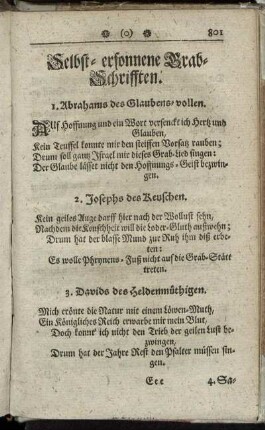 (0) 801
Selbst-ersonnene Grab-
Schrifften.
1. Abrahams des Glaubens-vollen.
Auf Hoffnung und ein Wort versenckt ich Hertz und
Glauben,
Kein Teuffel konnte mir den steiffen Vorsatz rauben;
Drum soll gantz Israel mir dieses Grab-Lied singen:
Der Glaube lässet nicht den Hoffnungs-Geist bezwin-
gen.
2. Josephs des Keuschen.
Kein geiles Auge darff hier nach der Wollust sehn,
Nachdem die Keuschheit will die Loder-Gluth außwehn;
Drum hat der blasse Mund zur Ruh ihm diß erbe-
ten:
Es wolle Phrynens-Fuß nicht auf die Grab-Stätt
treten.
3. Davids des Heldenmüthigen.
Mich crönte die Natur mit einem Löwen-Muth,
Ein Königliches Reich erwarbe mir mein Blut,
Doch konnt' ich nicht den Trieb der geilen Lust be-
zwingen,
Drum hat der Jahre Rest den Psalter müssen sin-
gen.
Eee 4. Sa-